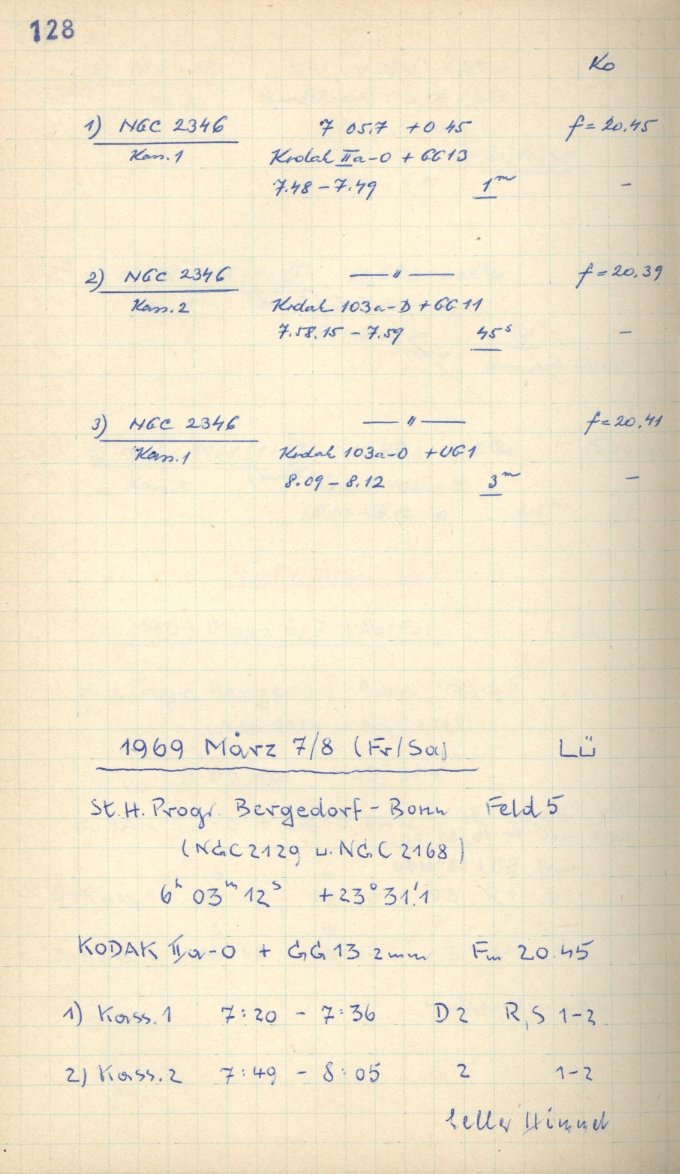 128
Ko
1) NGC 2346 7 05.7 +0 45 f=20.45
Kass.1 Kodak IIa-O + GG13
7.48 – 7.49 1m –
2) NGC 2346 — " — f=20.39
Kass.2 Kodak 103a-D + GG11
7.58.15 – 7.59 45s –
3) NGC 2346 — " — f=20.41
Kass.1 Kodak 103a-O + UG1
8.09 – 8.12 3m –
1969 März 7/8 (Fr/Sa) LÜ
St.H. Progr. Bergedorf – Bonn Feld 5
(NGC 2129 u. NGC 2168)
6h 03m 12s +23° 31'.1
KODAK IIa-O + GG13 2mm Fm 20.45
1) Kass.1 7:20 – 7:36 D2 R,S 1-2
2) Kass.2 7:49 – 8:05 2 1-2
heller Himmel